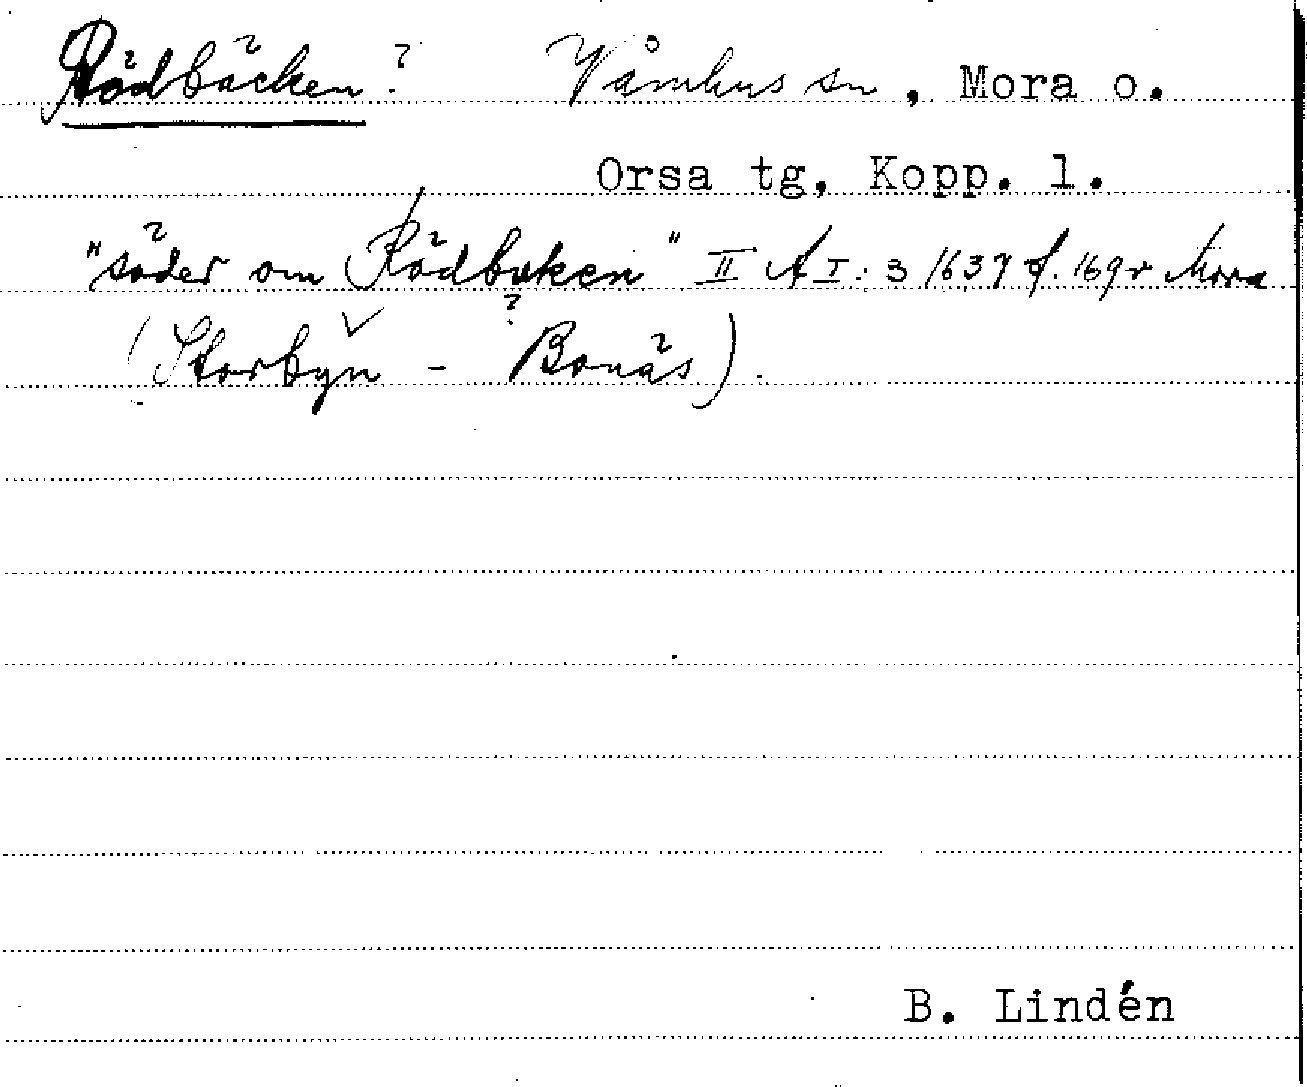 Rödbäcken? Våmhus sn, Mora o.
Orsa tg, Kopp. l.
"söder om Rödbäken" II A I: 3 1637 f. 169v Mora
(Storbyn - Bonäs).
B. Lindén